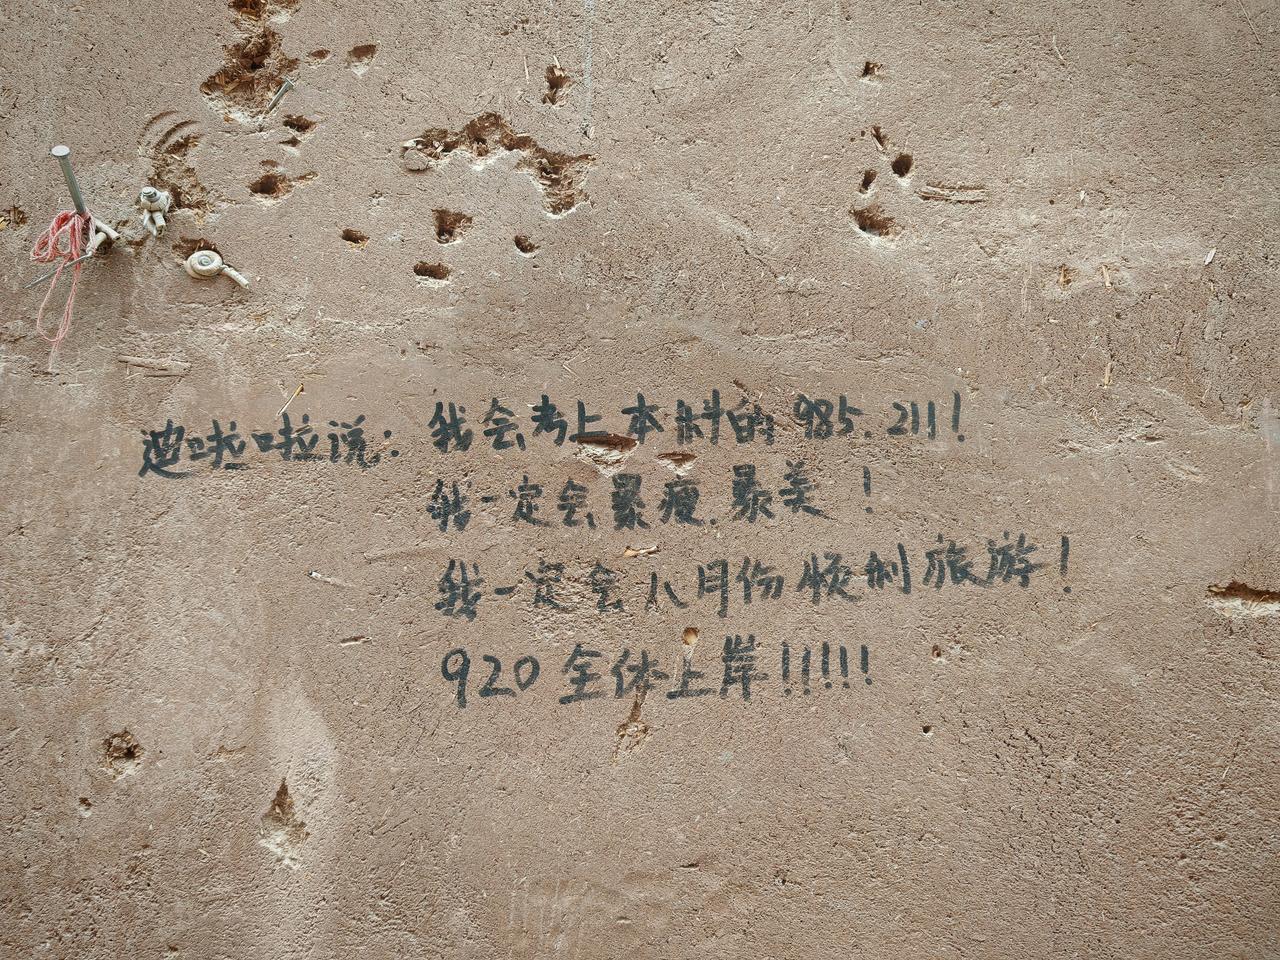 迪啦啦说：我会考上本科的985.211！
我一定会暴瘦.暴美！
我一定会八月份顺利旅游！
920全体上岸！！！！！